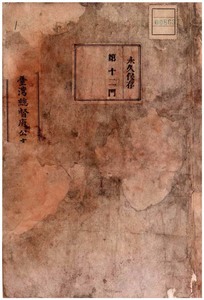 永久保存
第十二門
臺灣總督府公文